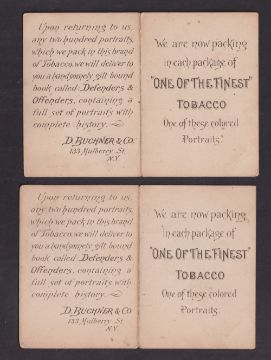 Upon returning to us,
any two hundred portraits,
which we pack in this brand
of Tobacco, we will deliver to
you a handsomely gilt bound
book called Defenders &
Offenders, containing a
full set of portraits with
complete history.
D. BUCHNER & CO.
133 Mulberry St
N.Y.
We are now packing
in each package of
"ONE OF THE FINEST"
TOBACCO
One of these colored
Portraits."
Upon returning to us,
any two hundred portraits,
which we pack in this brand
of Tobacco, we will deliver to
you a handsomely gilt bound
book called Defenders &
Offenders, containing a
full set of portraits with
complete history.
D. BUCHNER & CO.
133 Mulberry St
N.Y.
We are now packing
in each package of
"ONE OF THE FINEST"
TOBACCO
One of these colored
Portraits.